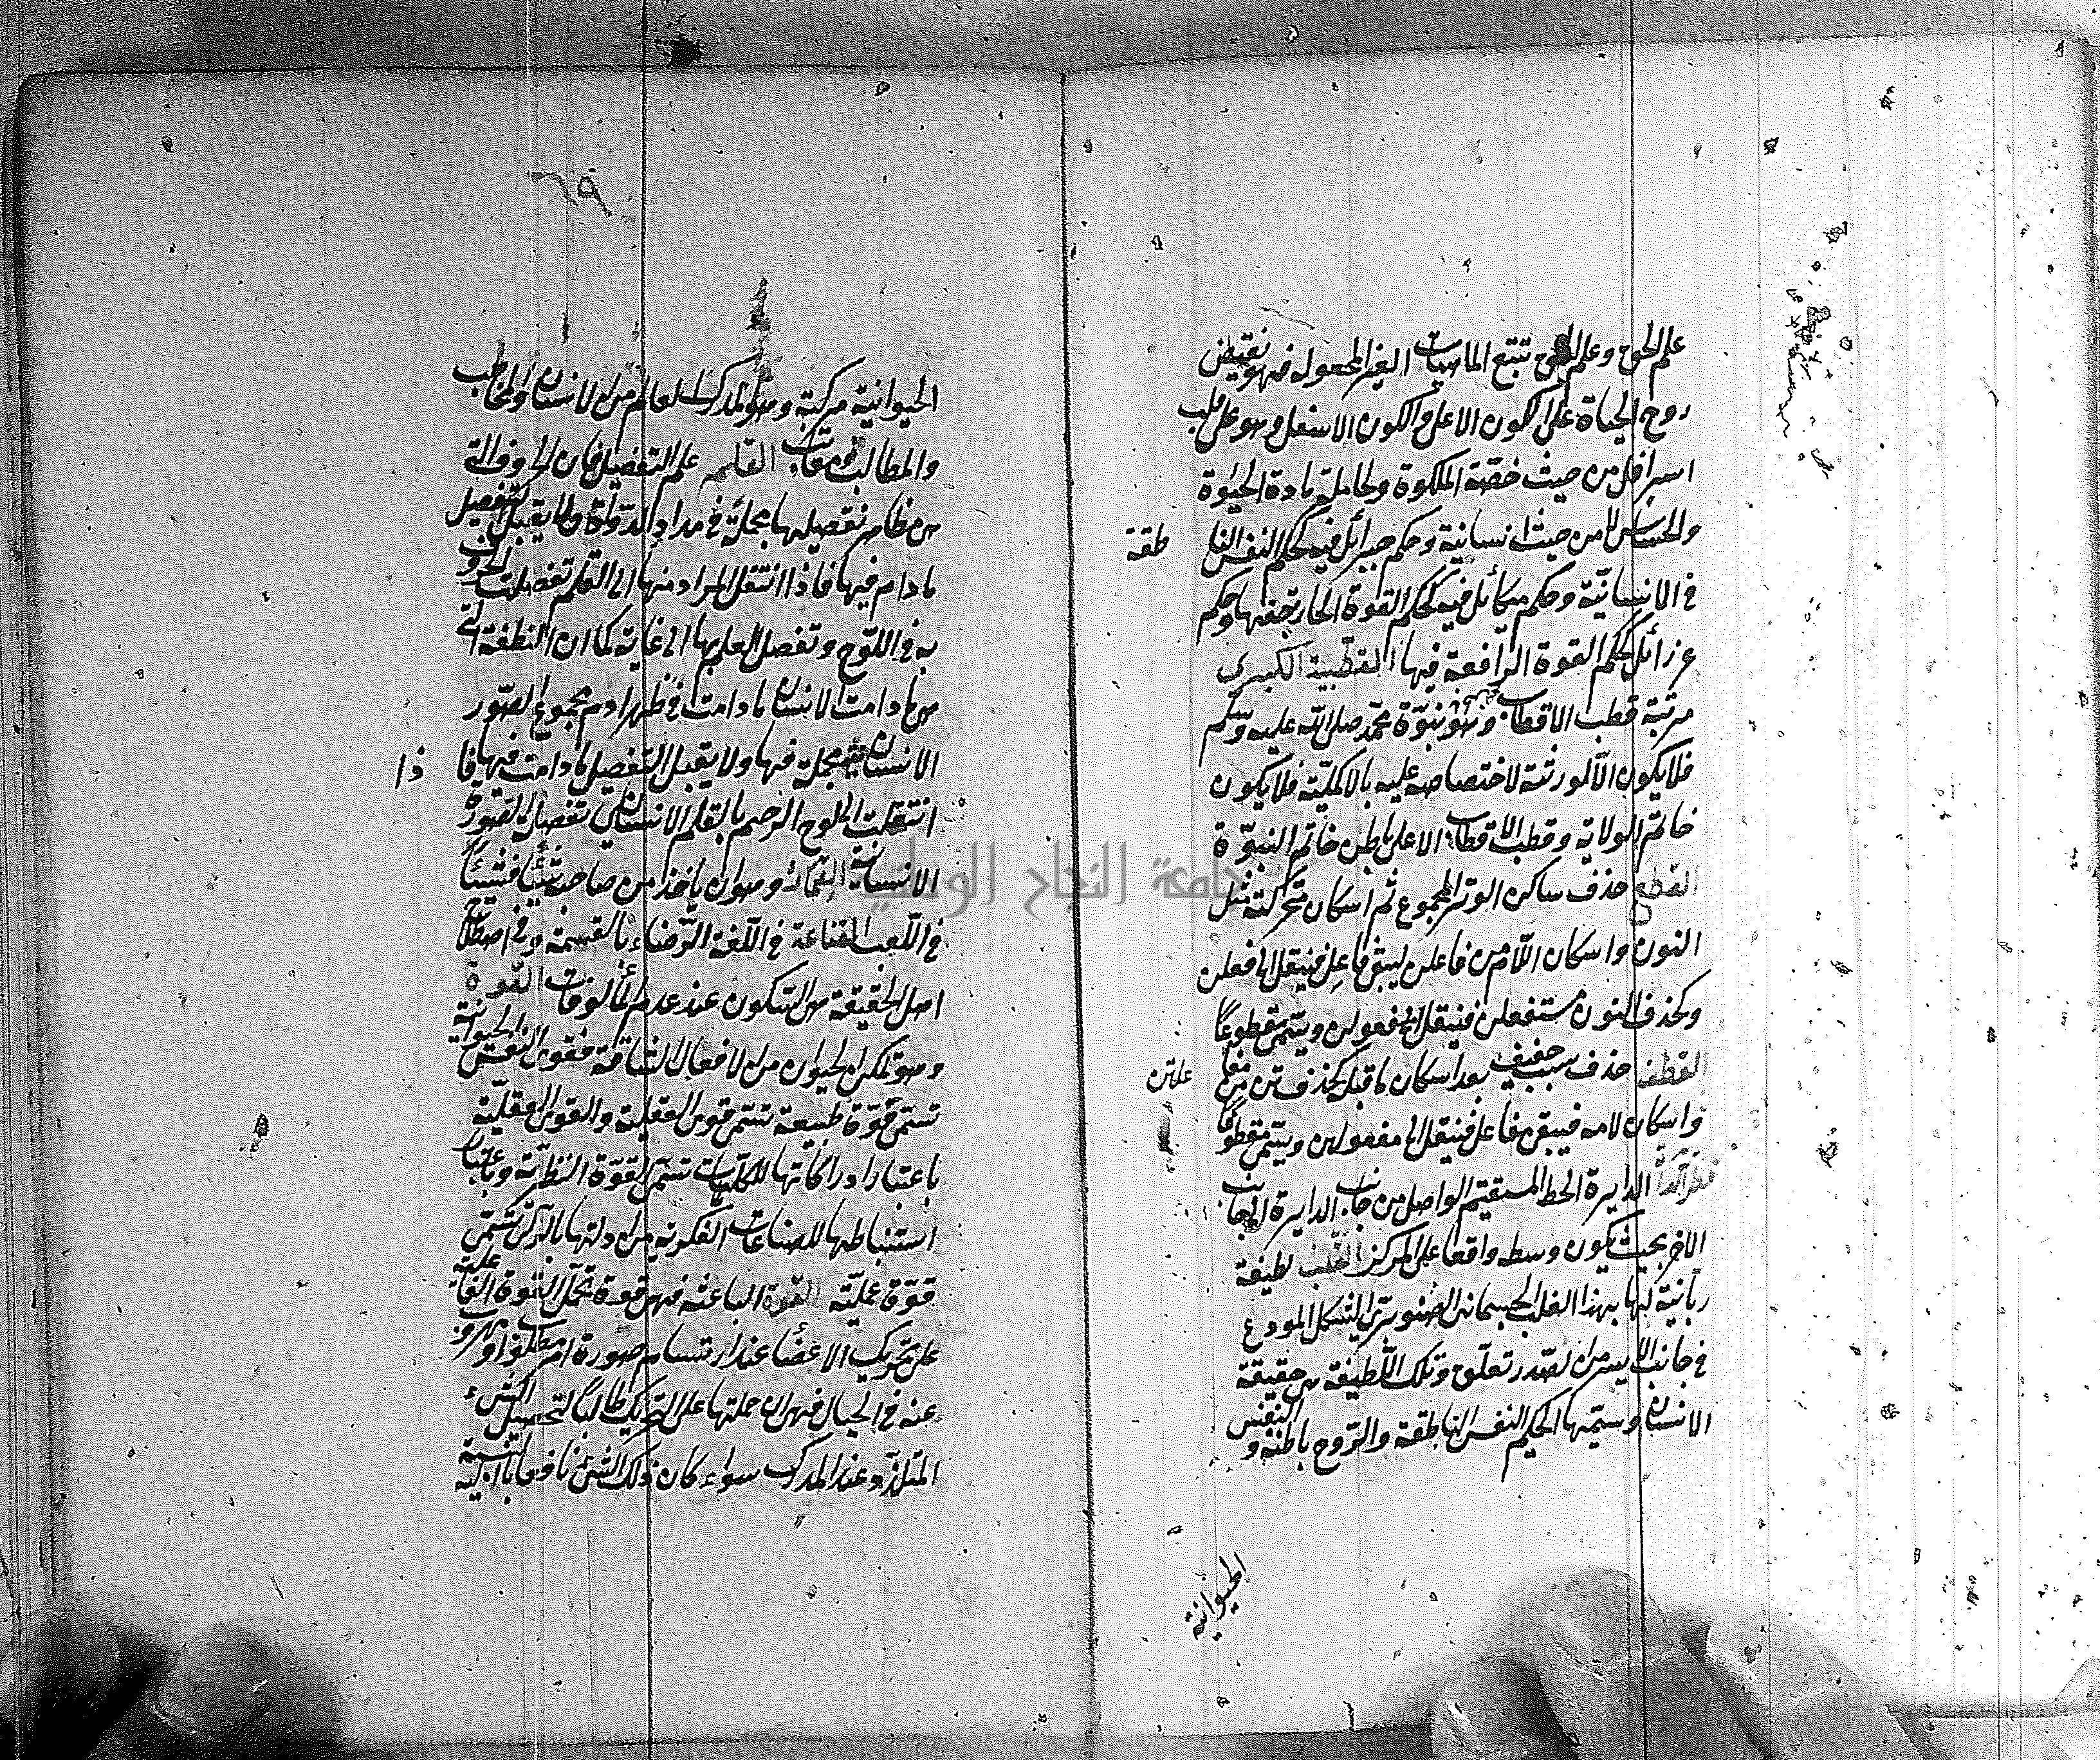 علم الحق وعلم الحق تتبع الماهيات الغير المجعولة فهو يفيض
روح الحياة على الكون الاعلى والكون الاسفل وهو على قلب
اسرافيل من حيث حصته الملكوة الحاملة مادة الحيوة
والحساس لا من حيث انسانية وحكم جبرائل فيه كحكم النفس النا طقة
في الانسانية وحكم ميكائل فيه كحكم القوة الجاذبة فيها وحكم
عزرائل كحكم القوة الرافعة فيها القطبية الكبرى
مرتبة قطب الاقطاب وهو نبوة محمد صلى الله عليه وسلم
فلا يكون الا لورثته لاختصاصه عليه بالاكملية فلا يكون
خاتم الولاية وقطب الاقطاب الا على باطن خاتم النبوة
القطع حذف ساكن الوتد المجموع ثم اسكان متحركته مثل
النون واسكان اللام من فاعلن ليبقى فاعل فينقل الى فعلن
وكحذف النون مستفعلن فينقل الى مفعولن ويسمى مقطوعا
القطف حذف سبب خفيف بعد اسكان ما قبله كحذف تن من مفا علتن
واسكان لامه فيبقى مفاعل فينقل الى مفعولن ويسمى مقطوفا
قطر الدايرة الخط المستقيم الواصل من جانب الدايرة الى جانب
الاخر بحيث يكون وسطه واقعا على المركز القلب لطيفة
ربانية لها بهذا القلب الجسماني الصنوبري الشكل المودع
في جانب الايسر من الصدر تعلق وتلك اللطيفة هي حقيقة
الانسان وسميها الحكيم النفس الناطقة والروح باطنه والنفس
الحيوانية
٦٩
الحيوانية مركبة وهو المدرك العالم من الانسان والمخاطب
والمطالب والمعاتب القلم علم التفصيل فان الحروف التي
هي مظاهر تفصيلها مجملة في مداد الدواة ولا يقبل التفصيل
ما دام فيها فاذا انتقل المراد منها الى القلم تفصلت الحروف
به في اللوح وتفصل العلم بها الى غاية كما ان النطفة التي
هي مادامت الانسان مادامت في ظهر ادم مجموع الصور
الانسانية مجملة فيها ولا يقبل التفصيل مادامت فيها فا ذا
انتقلت الى لوح الرحم بالقلم الانساني تفصل الصورة
الانسانية القمار وهو ان ياخذ من صاحبه شيأ فشيئاً
في اللعب القناعة في اللغة الرضاء بالقسمة وفي اصطلاح
اهل الحقيقة هي السكون عند عدم المألوفات القوة
وهو تمكن الحيوان من الافعال الشاقة فقوى النفس الحيوانية
تسمى قوة طبيعة تسمى قوى العقلية والقوى العقلية
باعتبار ادراكاتها للكليات تسمى القوة النظرية وباعتبار
استنباطها للصناعات الفكرية من ادلتها بالرأي تسمى
قوة عملية القوة الباعثة فهي قوة تحمل القوة الفا علية
على تحريك الاعضا عند ارتسام صورة امر مطلوب او مهروب
عنه في الخيال فهي ان حملتها على التحريك طالباً لتحصيل الشيء
المتلذذ عند المدرك سواء كان ذلك الشئ نافعا بالنسبة اليه